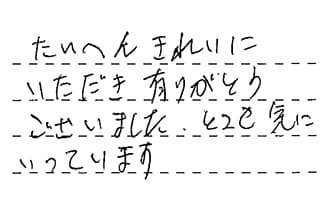 たいへんきれいに
いただき有りがとう
ございました、とても気に
いっています